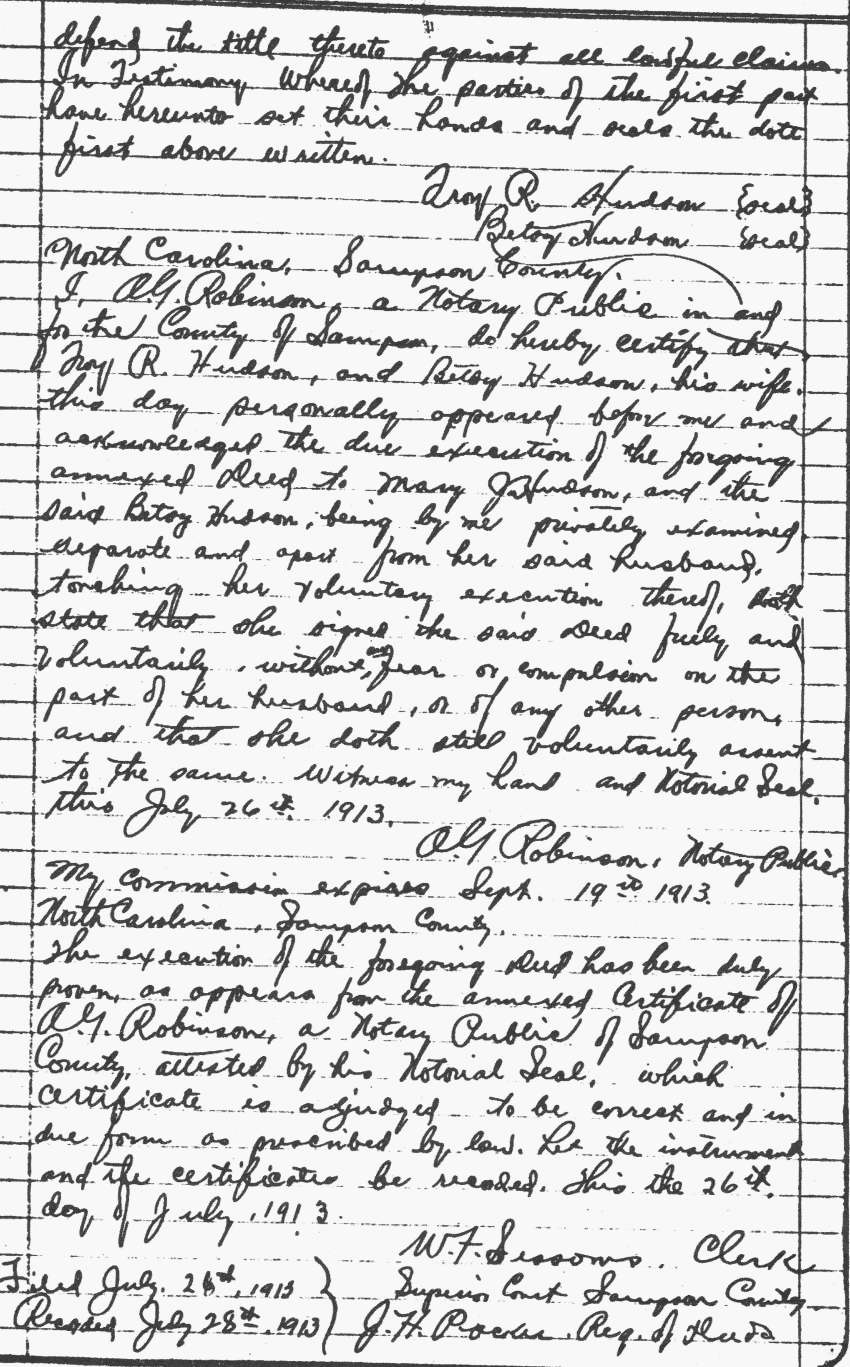 defend the title thereto against all lawful claims.
In Testimony Whereof the parties of the first part
have hereunto set their hands and seals the date
first above written.
Troy R. Hudson {seal}
Betsy Hudson {seal}
North Carolina, Sampson County.
I, A.G. Robinson, a Notary Public in and
for the County of Sampson, do hereby certify that
Troy R. Hudson, and Betsy Hudson, his wife.
this day personally appeared before me and
acknowledged the due execution of the forgoing
annexed Deed to Mary J. Hudson, and the
said Betsy Hudson, being by me privately examined,
separate and apart from her said husband,
touching her voluntary execution thereof, doth
state that she signed the said Deed freely and
Voluntarily, without, fear or compulsion on the
part of her husband, or of any other person,
and that she doth still voluntarily assent
to the same. Witness my hand and Notorial Seal,
this July 26th. 1913.
A.G. Robinson, Notary Public.
My commission expires Sept. 19th 1913.
North Carolina, Sampson County.
The execution of the foregoing Deed has been duly
proven, as appears from the annexed Certificate of
A.G. Robinson, a Notary Public of Sampson
County, attested by his Notorial Seal, which
certificate is adjudged to be correct and in
due form as prescribed by law. Let the instrument
and the certificates be recoded. This the 26th.
day of July, 1913.
W.F. Sessoms. Clerk
Superior Court Sampson County.
Filed July. 26th, 1913
Recoded July 28th. 1913 J.H. Reg. of Deeds